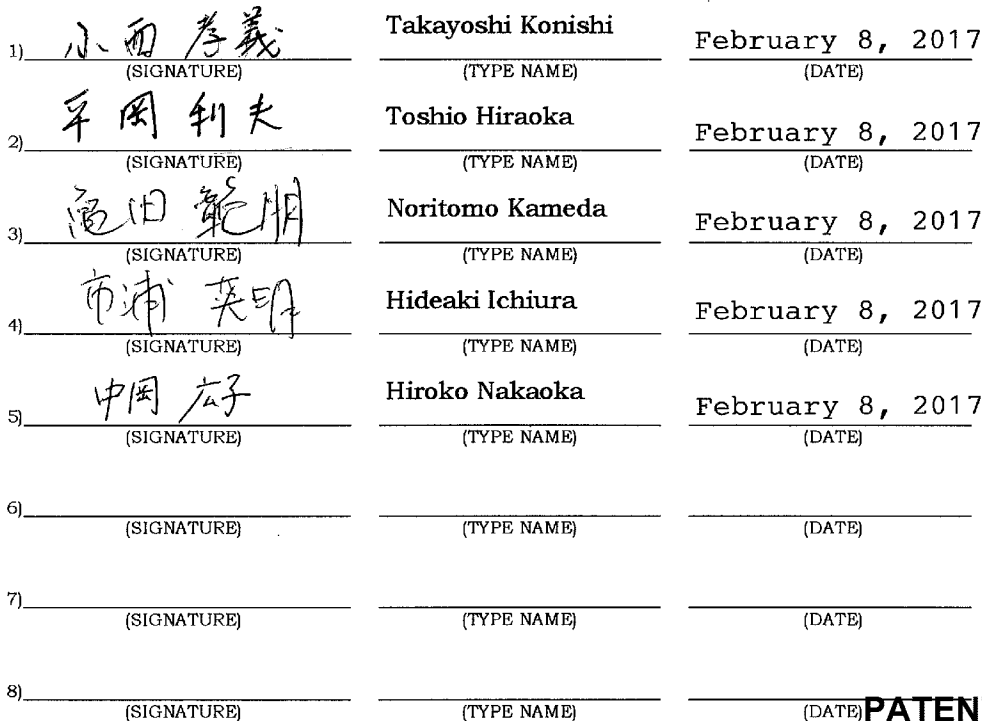 1) 小西 孝義 Takayoshi Konishi February 8, 2017
(SIGNATURE) (TYPE NAME) (DATE)
2) 平岡 利夫 Toshio Hiraoka February 8, 2017
(SIGNATURE) (TYPE NAME) (DATE)
3) 亀田 範朋 Noritomo Kameda February 8, 2017
(SIGNATURE) (TYPE NAME) (DATE)
4) 市浦 英明 Hideaki Ichiura February 8, 2017
(SIGNATURE) (TYPE NAME) (DATE)
5) 中岡 広子 Hiroko Nakaoka February 8, 2017
(SIGNATURE) (TYPE NAME) (DATE)
6)
(SIGNATURE) (TYPE NAME) (DATE)
7)
(SIGNATURE) (TYPE NAME) (DATE)
8)
(SIGNATURE) (TYPE NAME) (DATE) PATEN